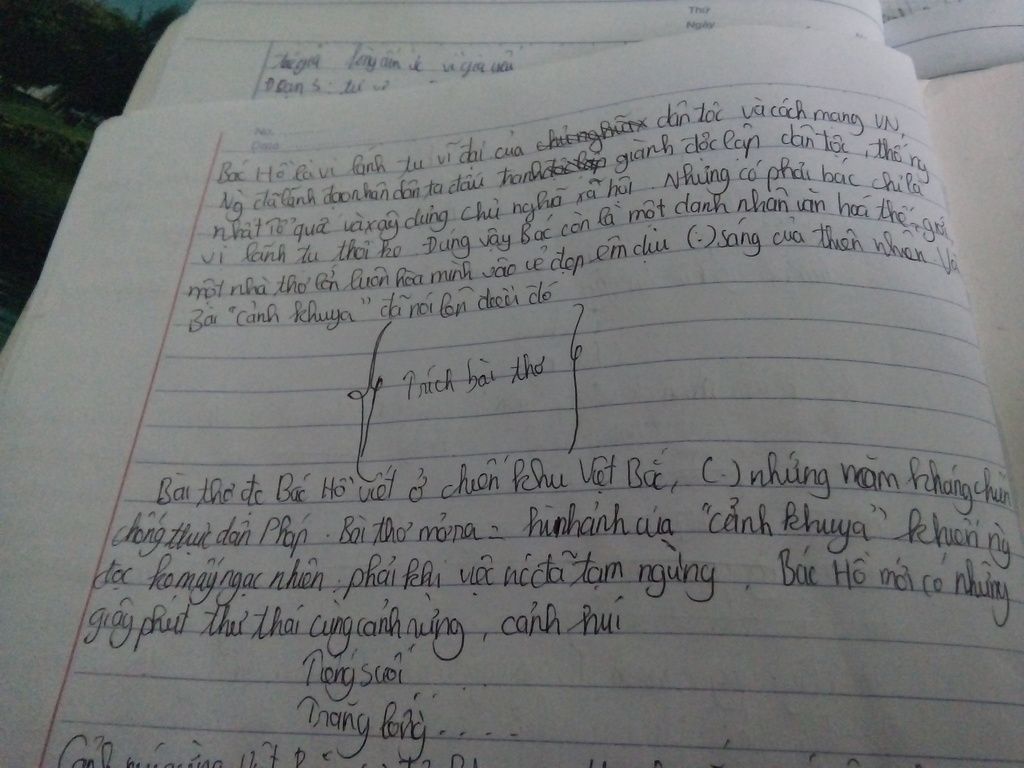 Thứ
Ngày
No.
Date
Tác giả
Đoạn 3:
Bác Hồ là vị lãnh tụ vĩ đại của dân tộc và cách mạng VN,
Ng đã lãnh đạo nhân dân ta đấu tranh giành độc lập dân tộc, thống
nhất Tổ quốc và xây dựng chủ nghĩa xã hội. Nhưng có phải bác chỉ là
vị lãnh tụ thôi ko. Đúng vậy Bác còn là một danh nhân văn hoá thế giới,
một nhà thơ lớn luôn hòa mình vào vẻ đẹp êm dịu (.) sáng của thiên nhiên. Và
Bài "cảnh khuya" đã nói lên được đó
Trích bài thơ
Bài thơ đc Bác Hồ viết ở chiến khu Việt Bắc, (.) những năm kháng chiến
chống thực dân Pháp. Bài thơ mở ra = hình ảnh của "cảnh khuya" khiến ng
đọc ko mấy ngạc nhiên. phải khi việc nc tạm ngừng, Bác Hồ mới có những
giây phút thư thái cùng cảnh rừng, cảnh núi
Tiếng suối
Trăng lồng.....